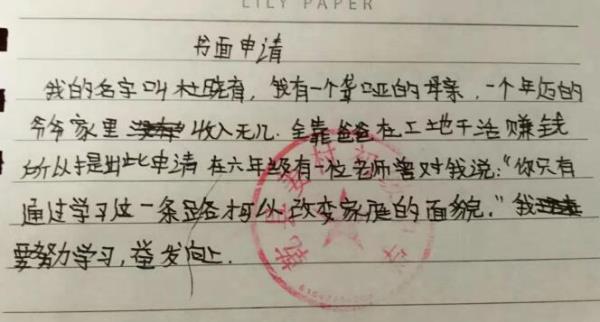 LILY PAPER
书面申请
我的名字叫杜晓有，我有一个聋哑的母亲，一个年迈的
爷爷家里收入无几．全靠爸爸在工地干活赚钱
所以提出此申请 在六年级有一位老师曾对我说："你只有
通过学习这一条路才可以改变家庭的面貌．"我
要努力学习，奋发向上．